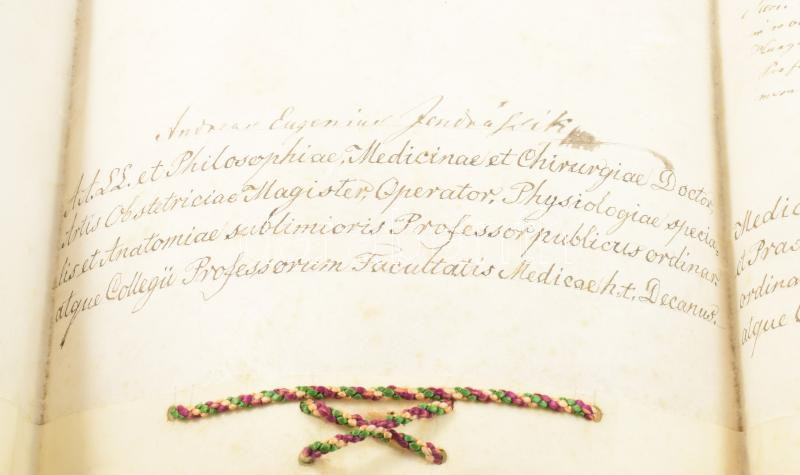 Andreas Eugenius Jendrássik
AA.LL. et Philosophiae, Medicinae et Chirurgiae Doctor,
Artis Obstetriciae Magister, Operator, Physiologiae specia-
lis et Anatomiae sublimioris Professor publicus ordinar.
atque Collegii Professorum Facultatis Medicae h.t. Decanus.
Medic
et Pra
ordina
atque